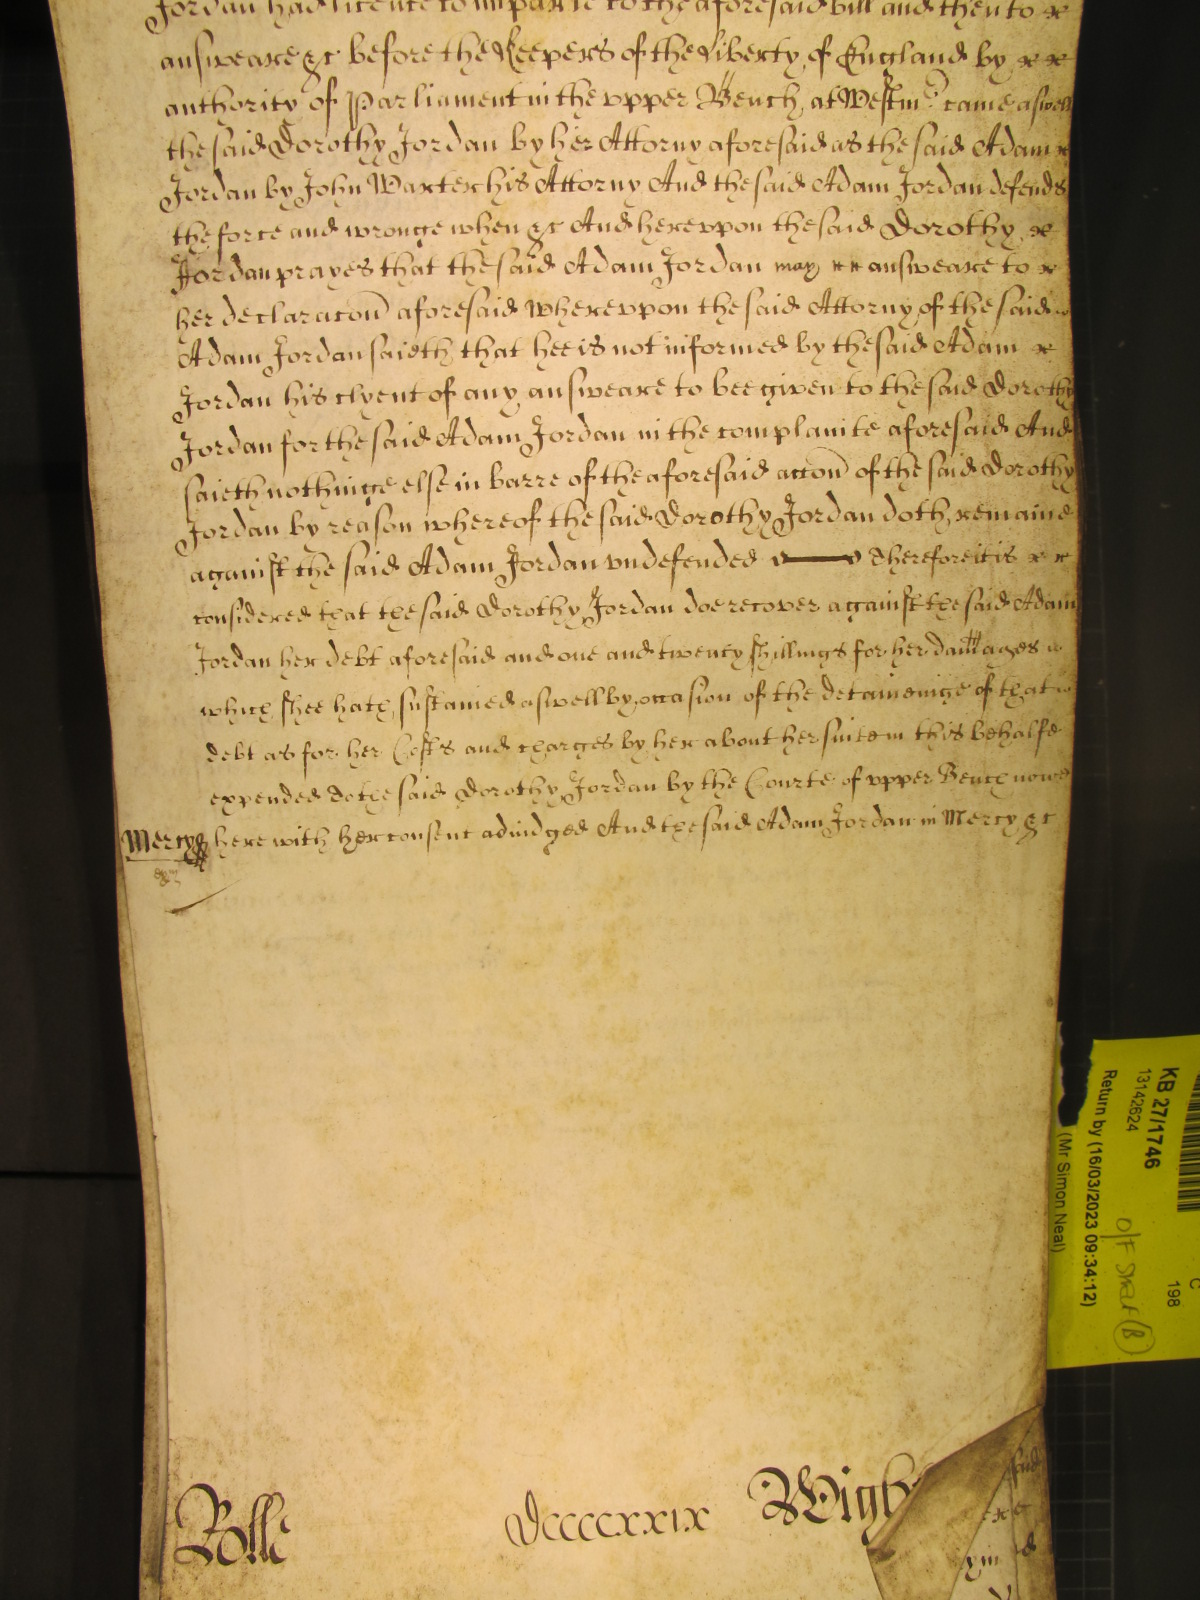 Jordan had licence to imparle to the aforesaid bill and then to
answeare &c before the Keepers of the Liberty of England by
authority of Parliament in the vpper Bench at Westmr came aswell
the said Dorothy Jordan by her Attorny aforesaid as the said Adam
Jordan by John Waxter his Attorny And the said Adam Jordan defends
the force and wronge when &c And herevpon the said Dorothy
Jordan prayes that the said Adam Jordan may answeare to
her declaracon aforesaid Wherevpon the said Attorny of the said
Adam Jordan saieth that hee is not informed by the said Adam
Jordan his clyent of any answeare to bee given to the said Dorothy
Jordan for the said Adam Jordan in the complainte aforesaid And
saieth nothinge else in barre of the aforesaid accon of the said Dorothy
Jordan by reason whereof the said Dorothy Jordan doth remaine
against the said Adam Jordan vndefended Therefore it is
considered that the said Dorothy Jordan doe recover against the said Adam
Jordan her debt aforesaid and one and twenty shillings for her damages
which shee hath sustained aswell by occasion of the deteineinge of that
debt as for her Costs and charges by her about her suite in this behalfe
expended to the said Dorothy Jordan by the Courte of vpper Bench nowe
Mercy here with her consent adiudged And the said Adam Jordan in Mercy &c
Rolle Dccccxxix Wigh
KB 27/1746
13142624
Return by (16/03/2023 09:34:12)
(Mr Simon Neal)
C
198
O/F Shelf (B)